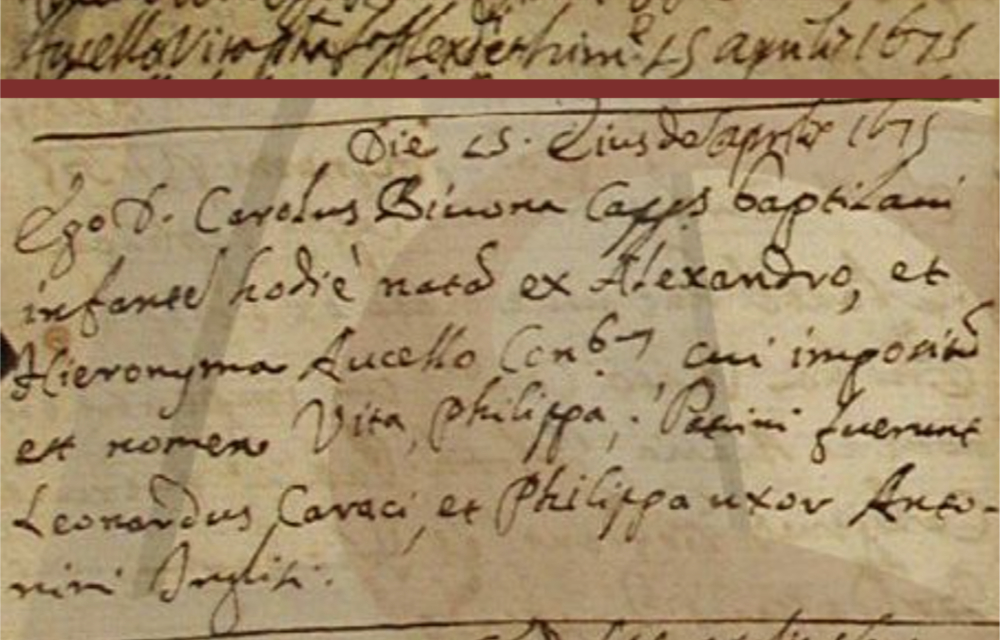 Aucello Vita 15 aprilis 1675
Die 15. Eiusde aprilis 1675
Ego D. Carolus Biuona Capps baptizaui
infante hodie nata ex Alexandro, et
Hieronyma Aucello Con: cui imposit
est nomen Vita, Philippa,: Patrini fuerunt
Leonardus Caraci, et Philippa uxor Anto-
nini